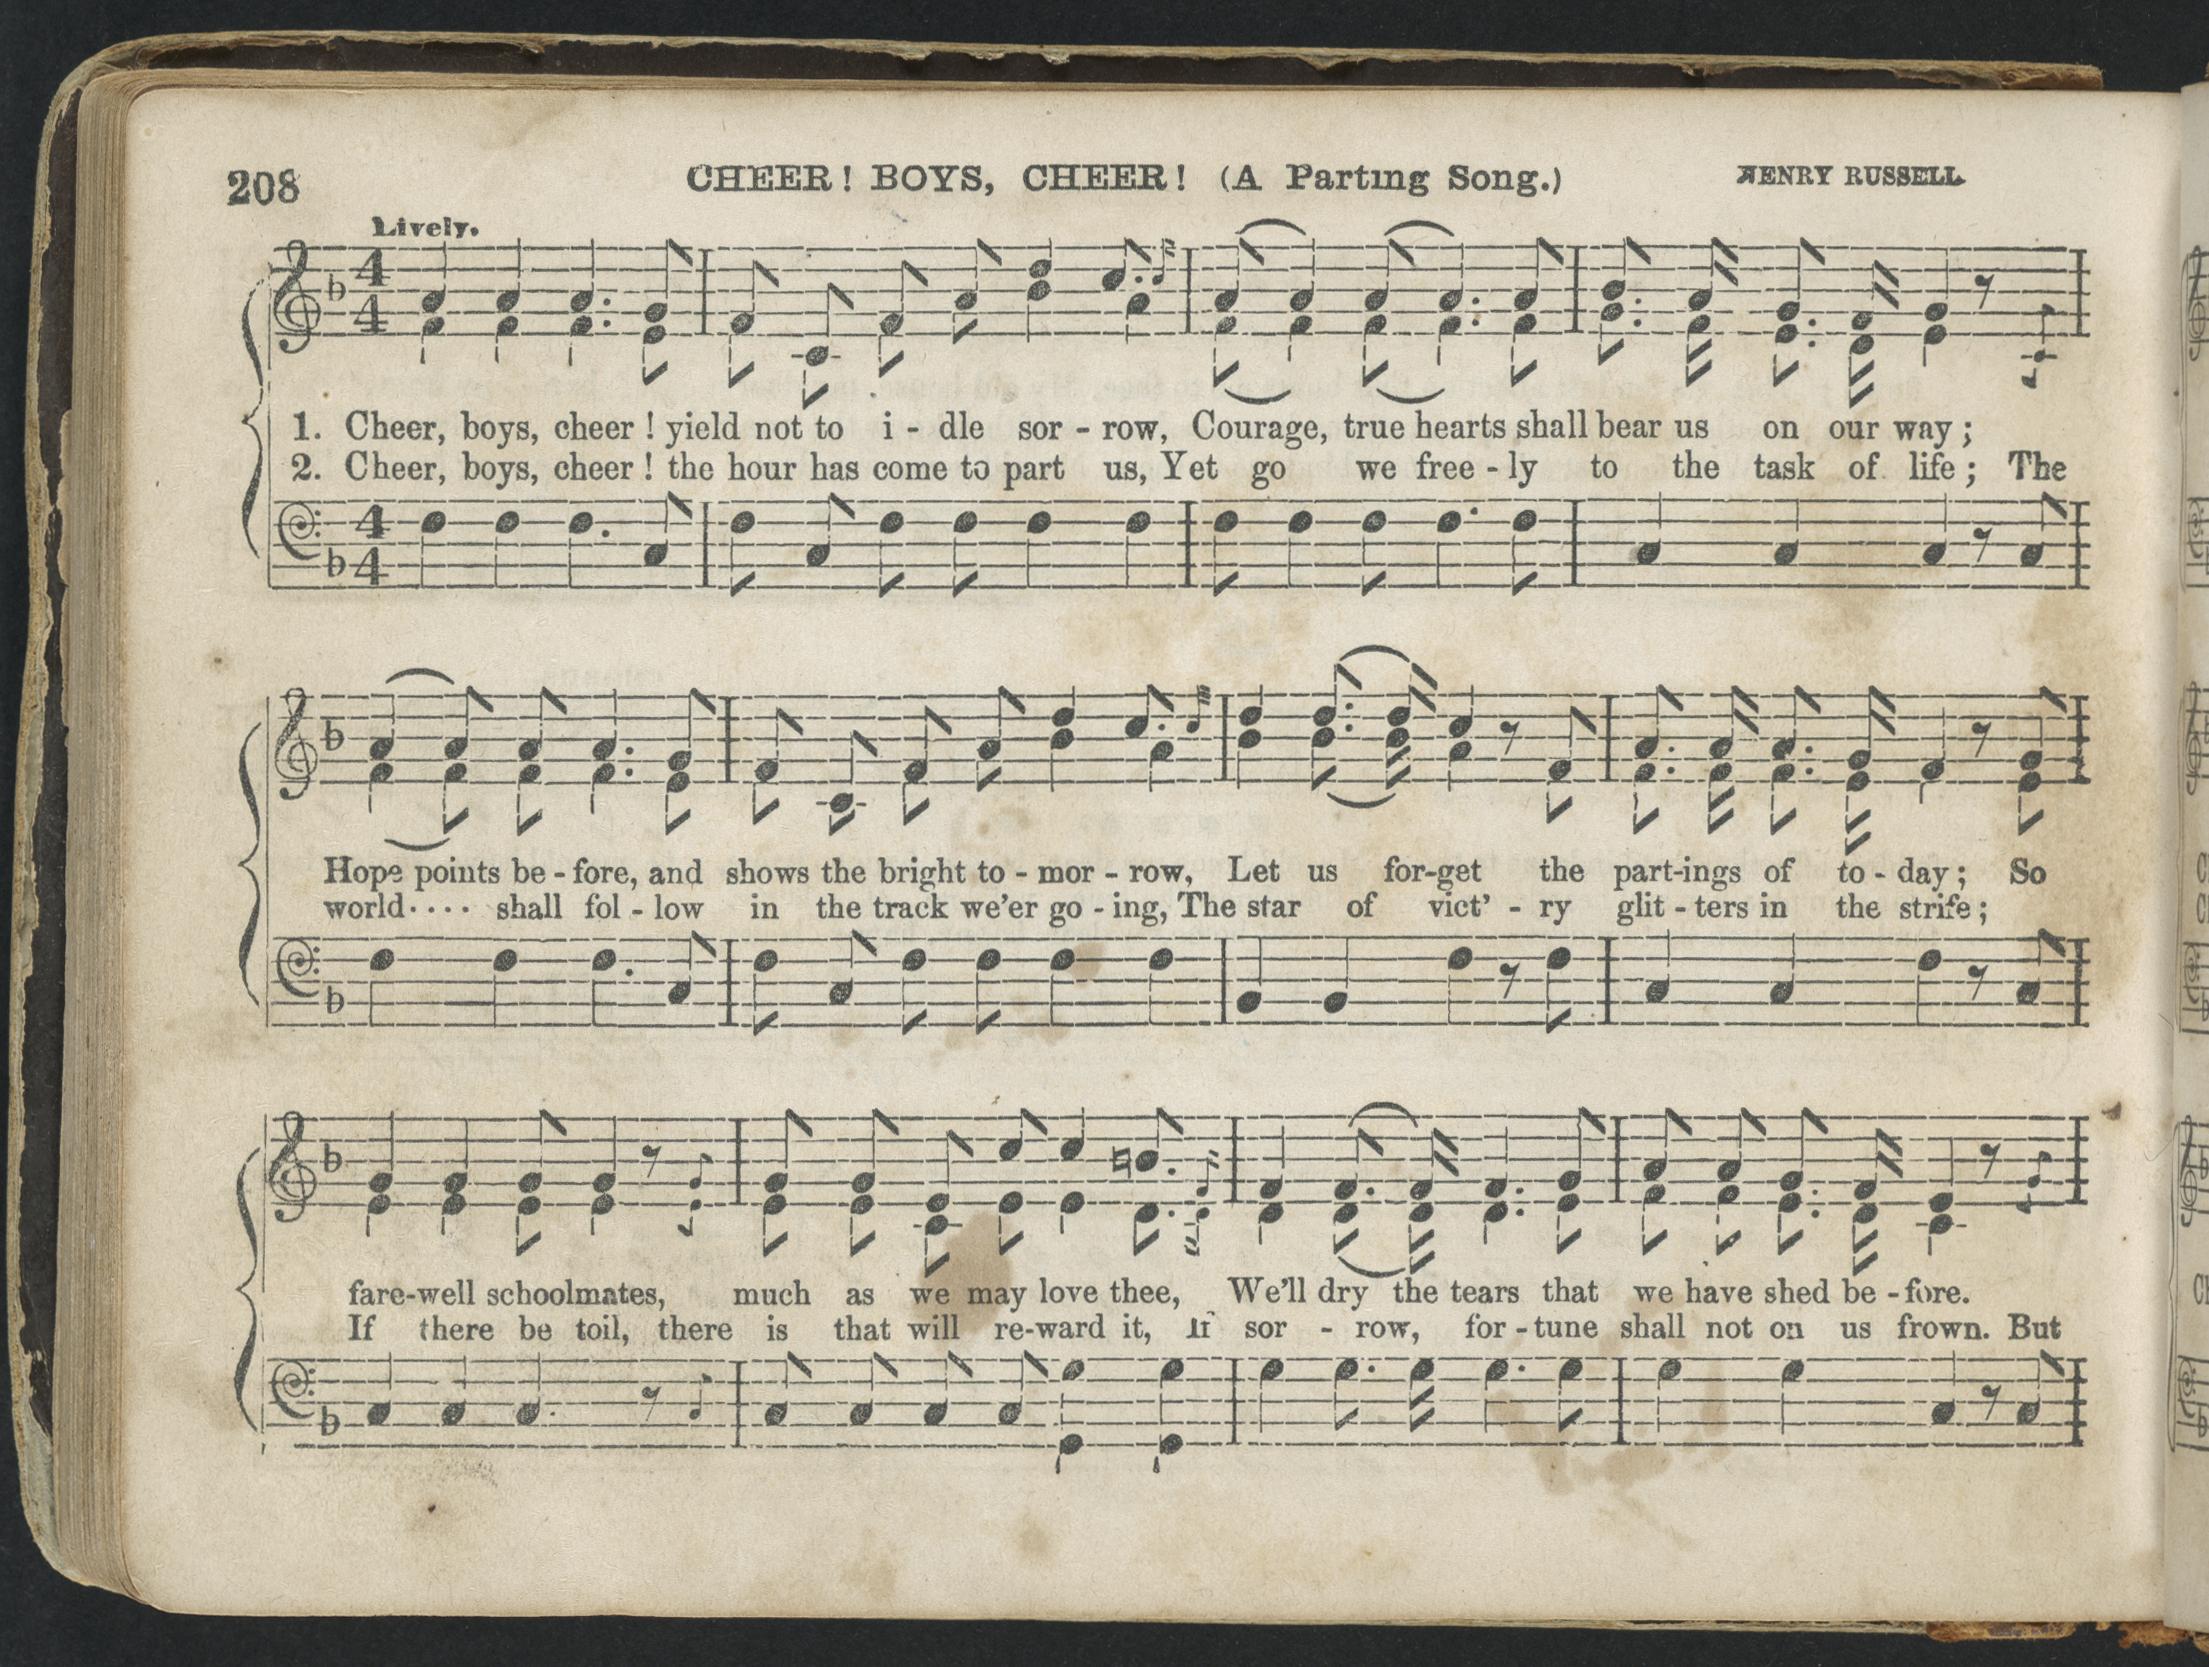 208
CHEER! BOYS, CHEER! (A Parting Song.)
HENRY RUSSELL
Lively.
4
4
1. Cheer, boys, cheer! yield not to i - dle sor - row, Courage, true hearts shall bear us on our way;
2. Cheer, boys, cheer! the hour has come to part us, Yet go we free - ly to the task of life; The
4
4
Hope points be - fore, and shows the bright to - mor - row, Let us for-get the part-ings of to - day; So
world.... shall fol - low in the track we'er go - ing, The star of vict' - ry glit - ters in the strife;
fare-well schoolmates, much as we may love thee, We'll dry the tears that we have shed be - fore.
If there be toil, there is that will re-ward it, If sor - row, for - tune shall not on us frown. But